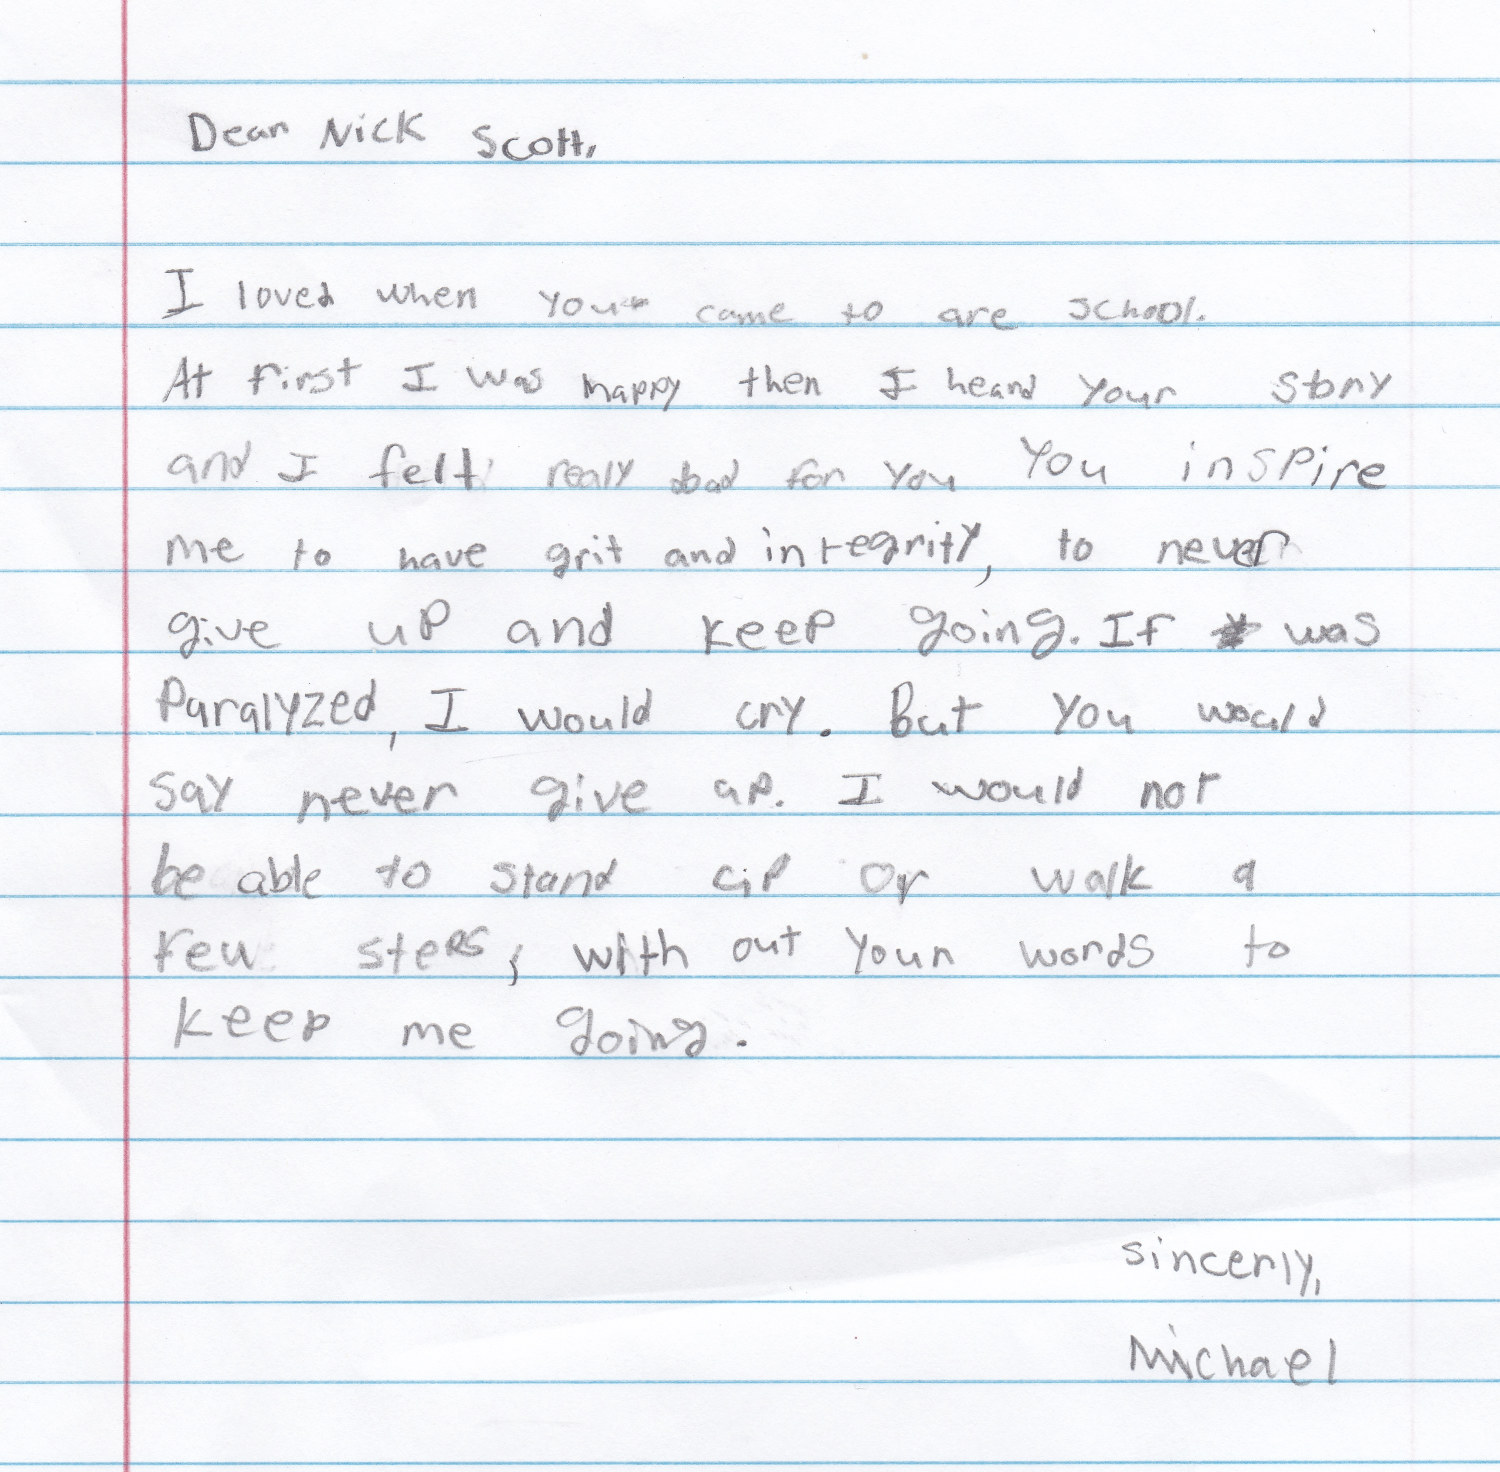 Dear Nick Scott,
I loved when you came to are school.
At first I was happy then I heard your story
and I felt realy bad for you You inspire
me to have grit and integrity, to never
give up and keep going. If was
Paralyzed, I would cry. But you would
say never give up. I would not
be able to stand up or walk a
few steps, with out your words to
keep me going.
sincerly,
Michael